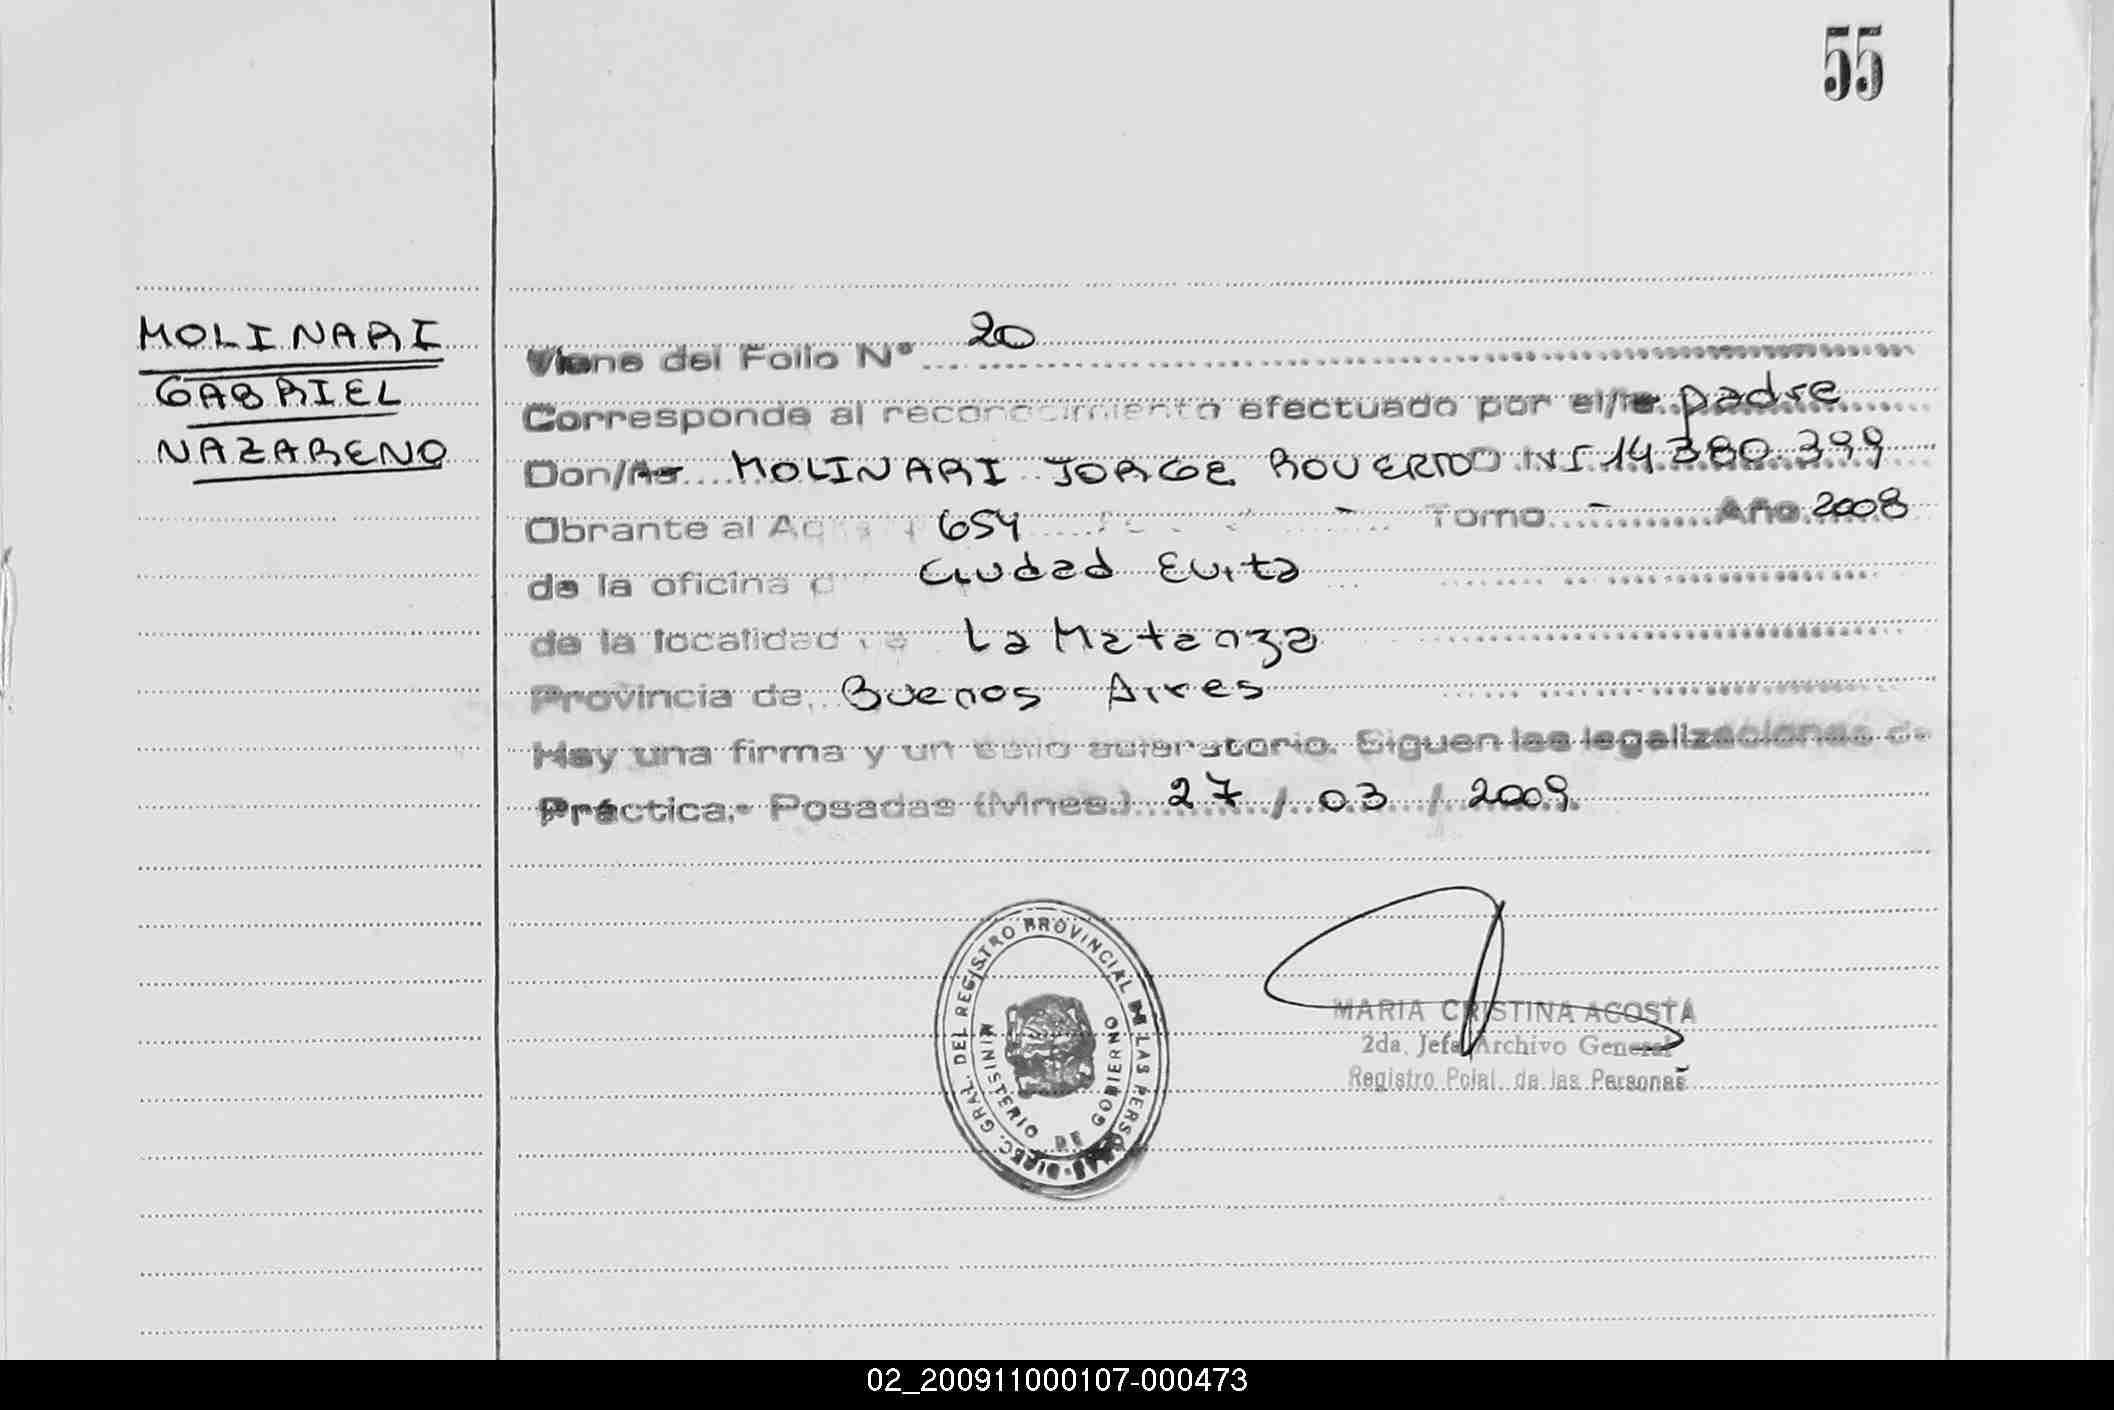 55
MOLINARI
GABRIEL
NAZARENO
Viene del Folio Nº 20
Corresponde al reconocimiento efectuado por el/la padre
Don/ña MOLINARI JORGE ROVERTO DNI 14.380.399
Obrante al Acta 654 - Tomo - Año 2008
de la oficina d Ciudad Evita
de la localidad de La Matanza
Provincia de Buenos Aires
Hay una firma y un sello aclaratorio. Siguen las legalizaciones de
Práctica.- Posadas (Mnes.) 27 / 03 / 2009.
DIREC. GRAL. DEL REGISTRO PROVINCIAL DE LAS PERSONAS
MINISTERIO DE GOBIERNO
MARIA CRISTINA ACOSTA
2da. Jefa Archivo General
Registro Pcial. de las Personas
02_200911000107-000473